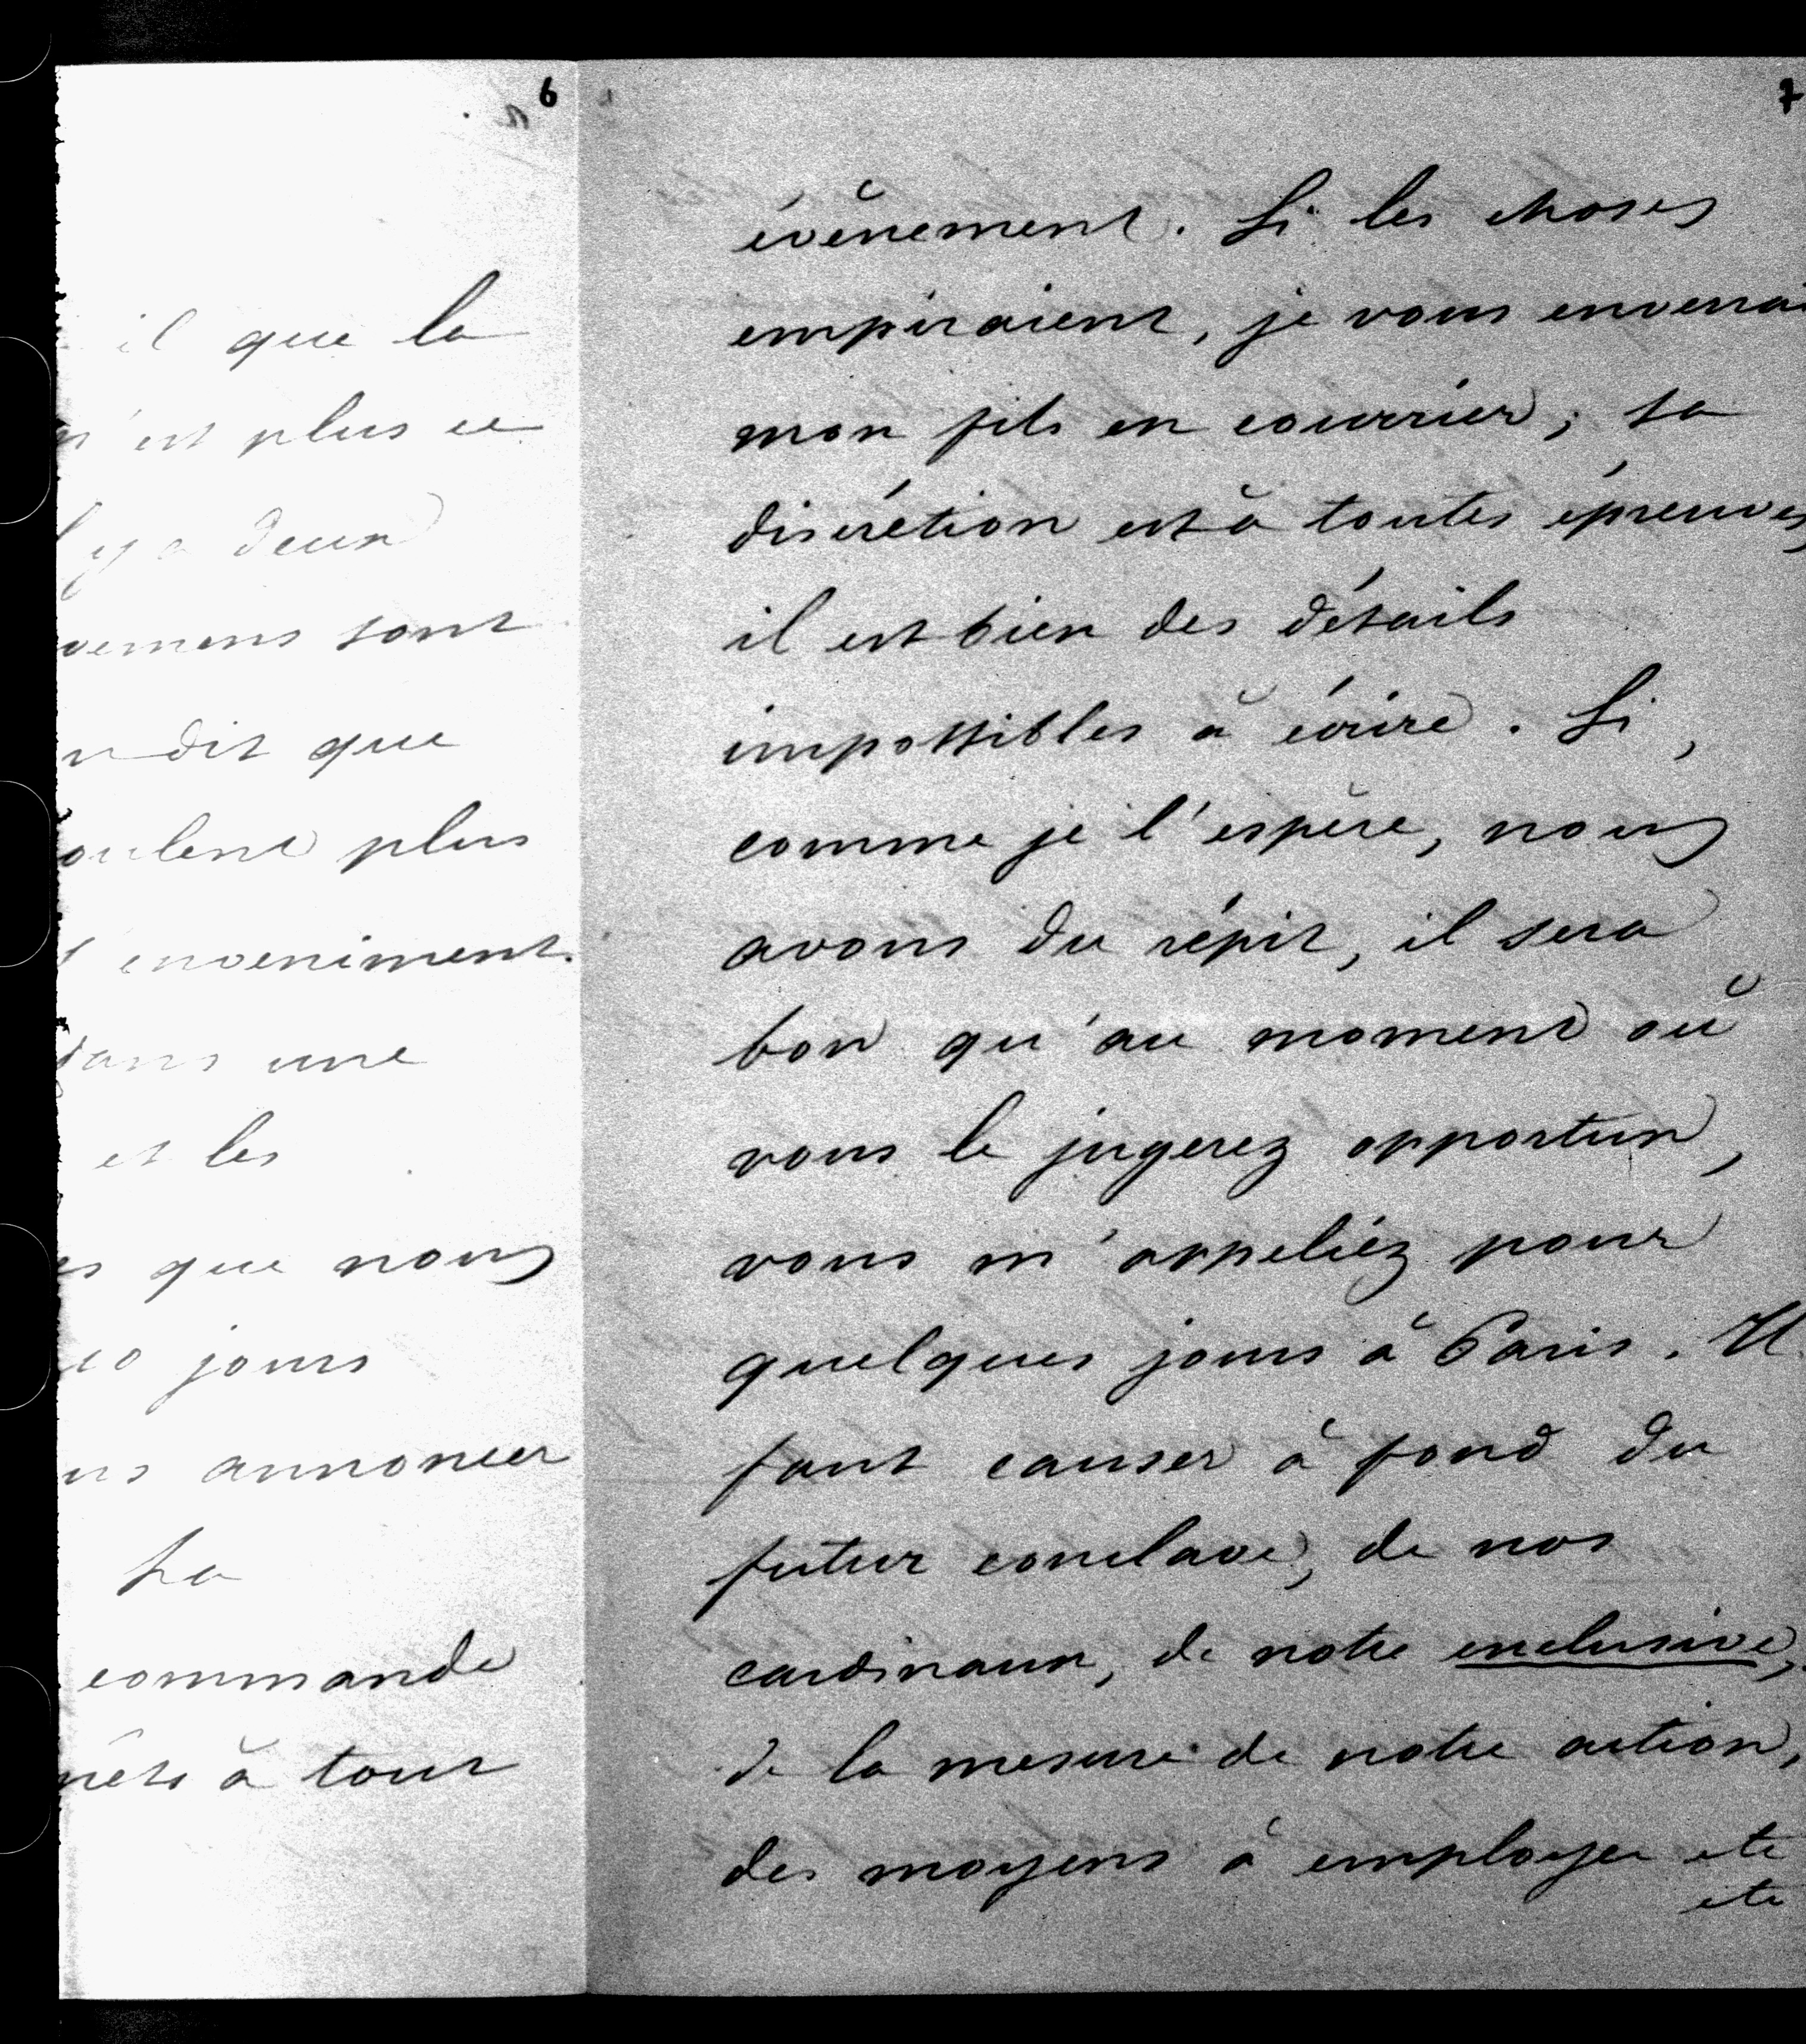 6
il que la
n'est plus ce
y a deux
vemens sont
n dit que
oulent plus
enveniment.
dans une
et les
es que nous
10 jours
us annoncer
La
commande
rêts à tout
7
évènement. Si les choses
empiraient, je vous enverrai
mon fils en courrier; sa
discrétion est à toutes épreuves,
il est bien des détails
impossibles à écrire. Si,
comme je l'espère, nous
avons du répit, il sera
bon qu'au moment où
vous le jugerez opportun,
vous m'appeliez pour
quelques jours à Paris. Il
faut causer à fond du
futur conclave, de nos
cardinaux, de notre exclusive,
de la mesure de notre action,
des moyens à employer etc
etc